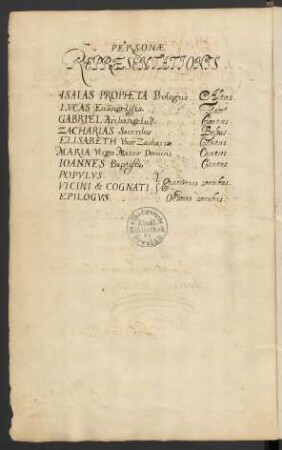 PERSONÆ
REPRESENTATIONIS
ISAIAS PROPHETA Prologus
LVCAS Evangelista
GABRIEL Archangelus Cantus
ZACHARIAS Sacerdos
ELISABETH Vxor Zachariæ Cantus
MARIA Virgo Mater Domini Cantus
IOANNES Baptista Cantus
POPVLVS
VICINI & COGNATI Quatuor vocibus
EPILOGVS vocibus
Stadt-
Bibliothek